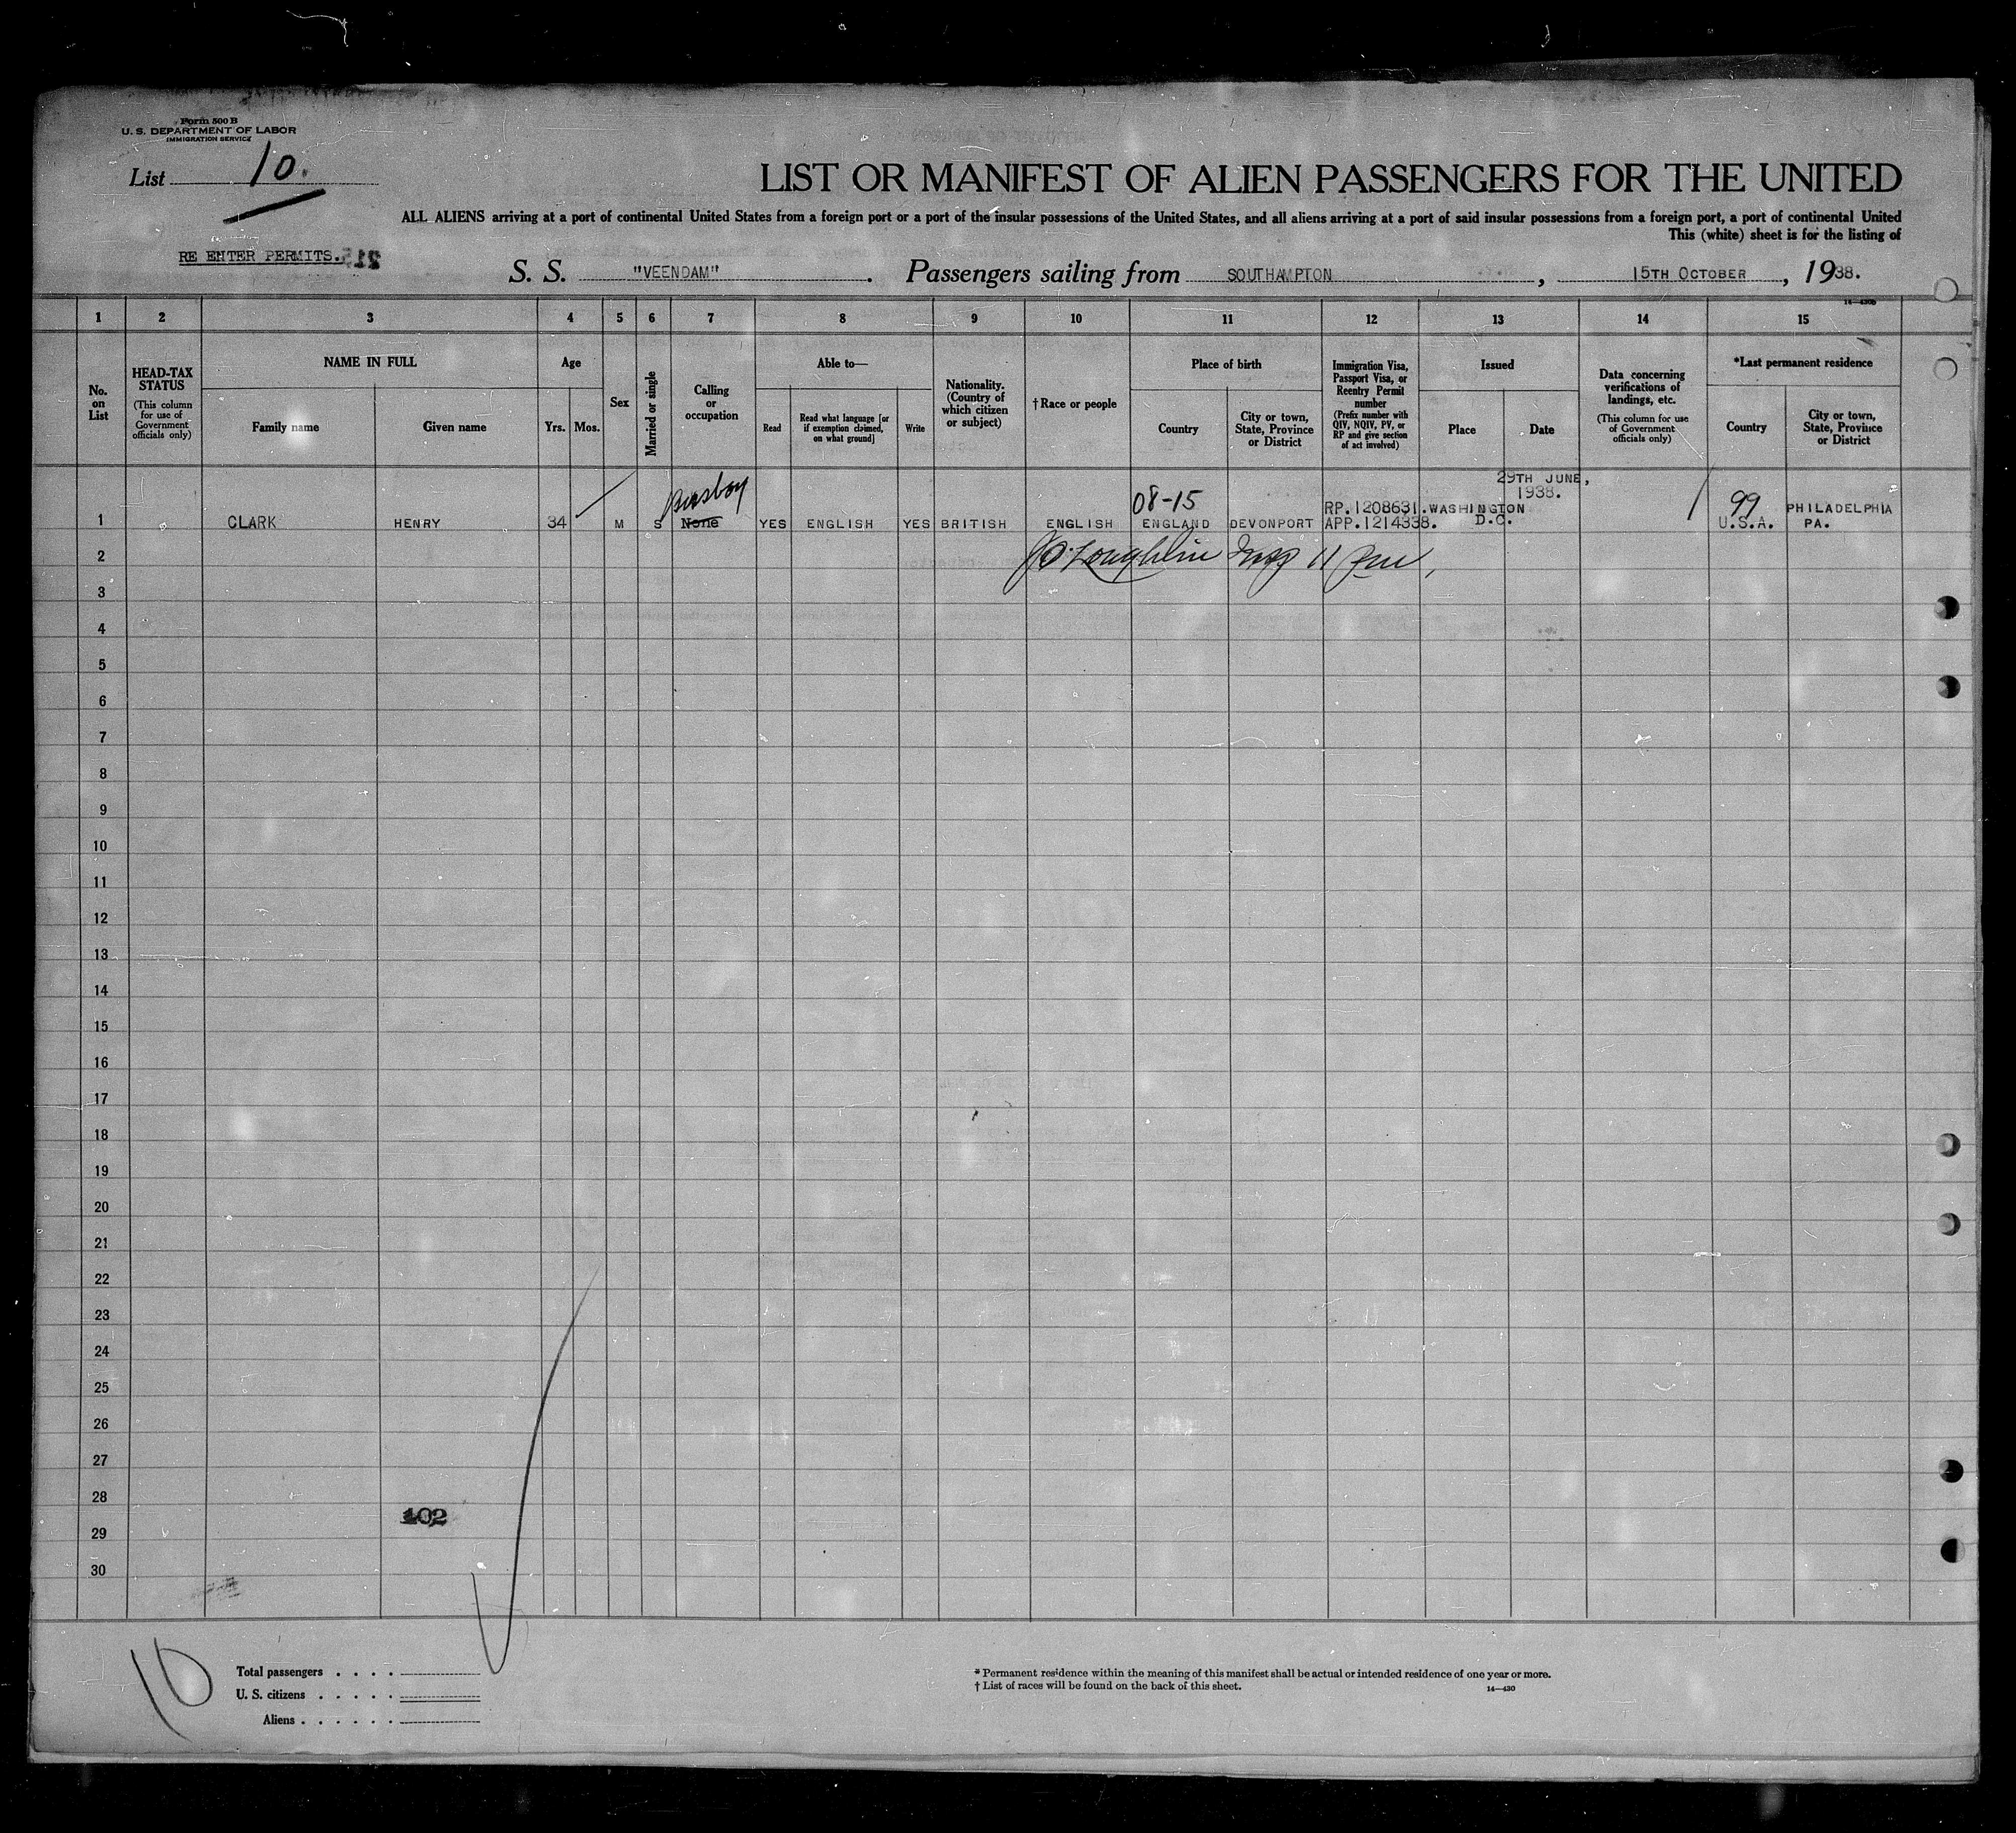 Form 500 B
U. S. DEPARTMENT OF LABOR
IMMIGRATION SERVICE
List 10.
LIST OR MANIFEST OF ALIEN PASSENGERS FOR THE UNITED
ALL ALIENS arriving at a port of continental United States from a foreign port or a port of the insular possessions of the United States, and all aliens arriving at a port of said insular possessions from a foreign port, a port of continental United
This (white) sheet is for the listing of
RE ENTER PERMITS.
S. S. "VEENDAM". Passengers sailing from SOUTHAMPTON, 15TH OCTOBER, 1938.
14—430B
1 2 3 4 5 6 7 8 9 10 11 12 13 14 15
No. on List
HEAD-TAX STATUS
(This column for use of Government officials only)
NAME IN FULL
Family name
Given name
Age
Yrs.
Mos.
Sex
Married or single
Calling or occupation
Able to—
Read
Read what language [or if exemption claimed, on what ground]
Write
Nationality. (Country of which citizen or subject)
† Race or people
Place of birth
Country
City or town, State, Province or District
Immigration Visa, Passport Visa, or Reentry Permit number
(Prefix number with QIV, NQIV, PV, or RP and give section of act involved)
Issued
Place
Date
Data concerning verifications of landings, etc.
(This column for use of Government officials only)
*Last permanent residence
Country
City or town, State, Province or District
29TH JUNE,
1938.
Busboy 08-15 99
RP.1208631. WASHINGTON PHILADELPHIA
1 CLARK HENRY 34 M S None YES ENGLISH YES BRITISH ENGLISH ENGLAND DEVONPORT APP.1214338. D.C. U.S.A. PA.
2 O'Loughlin Insp
3
4
5
6
7
8
9
10
11
12
13
14
15
16
17
18
19
20
21
22
23
24
25
26
27
28
102
29
30
10
Total passengers . . . .
U. S. citizens . . . . .
Aliens . . . . . .
* Permanent residence within the meaning of this manifest shall be actual or intended residence of one year or more.
† List of races will be found on the back of this sheet.
14—430